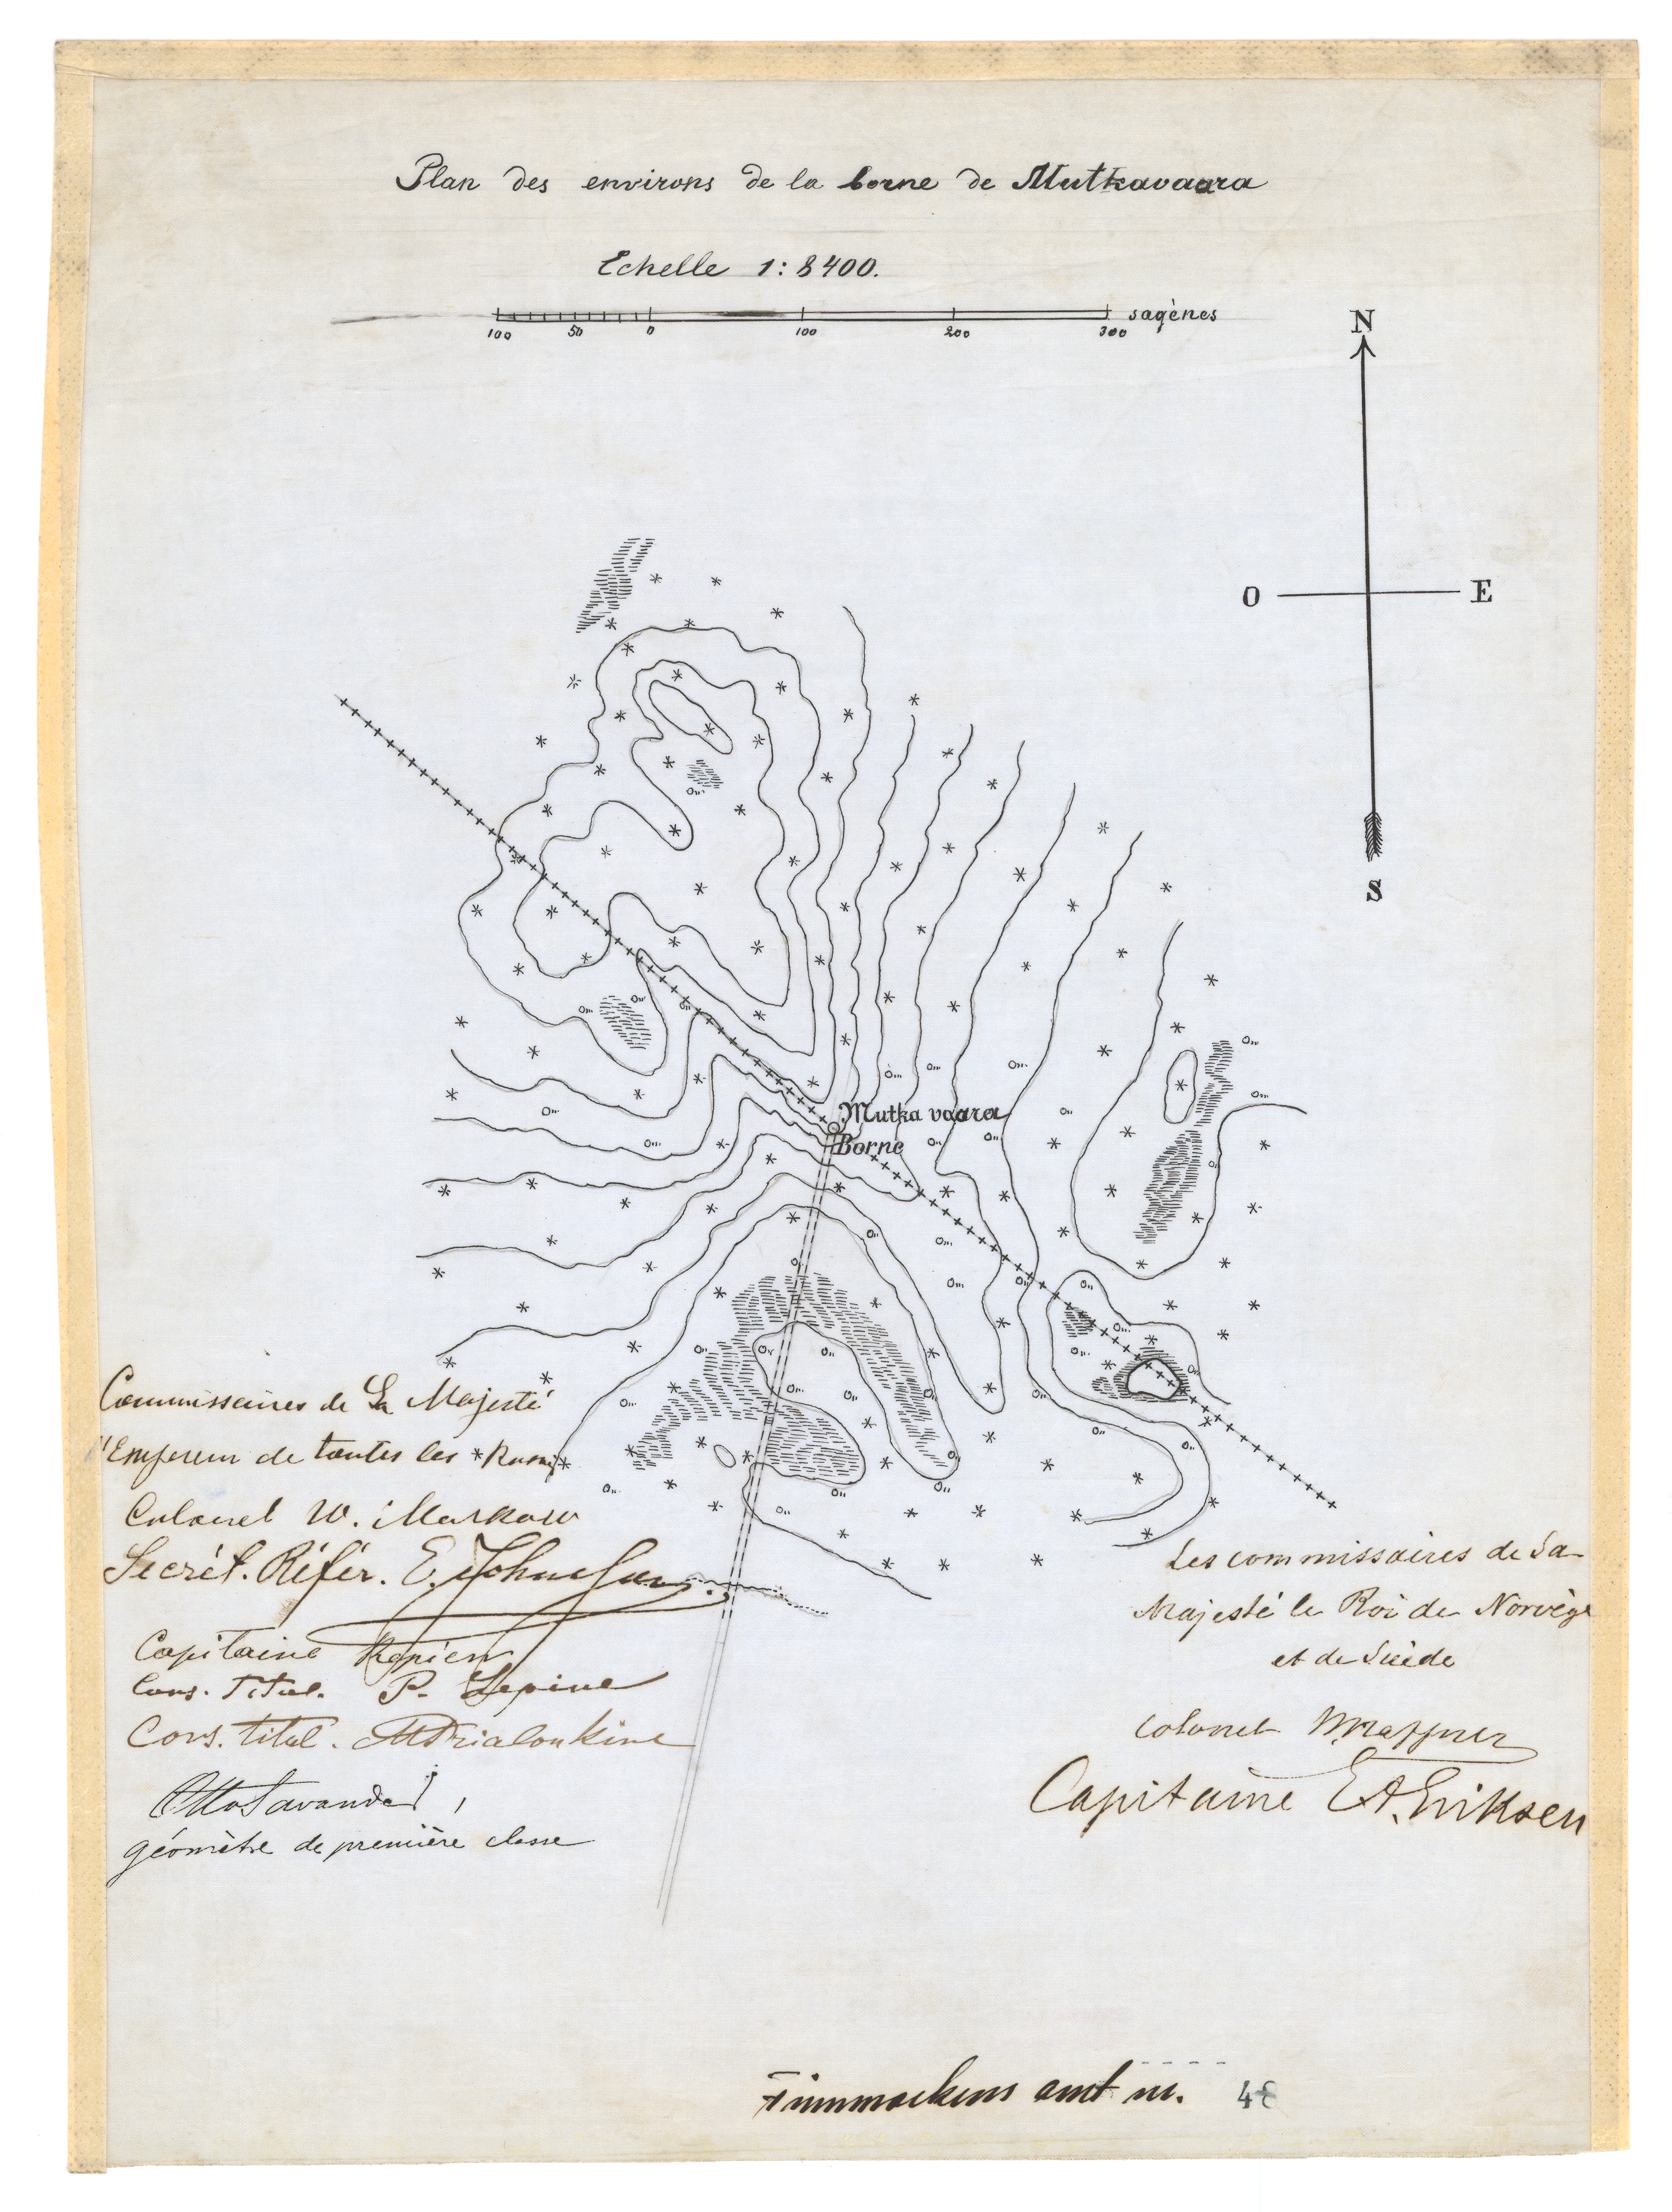 Plan des environs de la borne de Mutkavaara
Echelle 1:8400.
100 50 0 100 200 300 sagènes
N
O E
S
Mutka vaara
Borne
Commissaires de Sa Majesté
l'Empereur de toutes les Russies
Colonel W. Markow
Secrét. Référ. E.
Capitaine
Cons. Titul. P. Lepine
Cons. titul.
Otto Savander,
géomètre de première classe
Les commissaires de Sa
Majesté le Roi de Norvège
et de Suède
Colonel
Capitaine E A. Eriksen
Finmarkens amt nr. 48